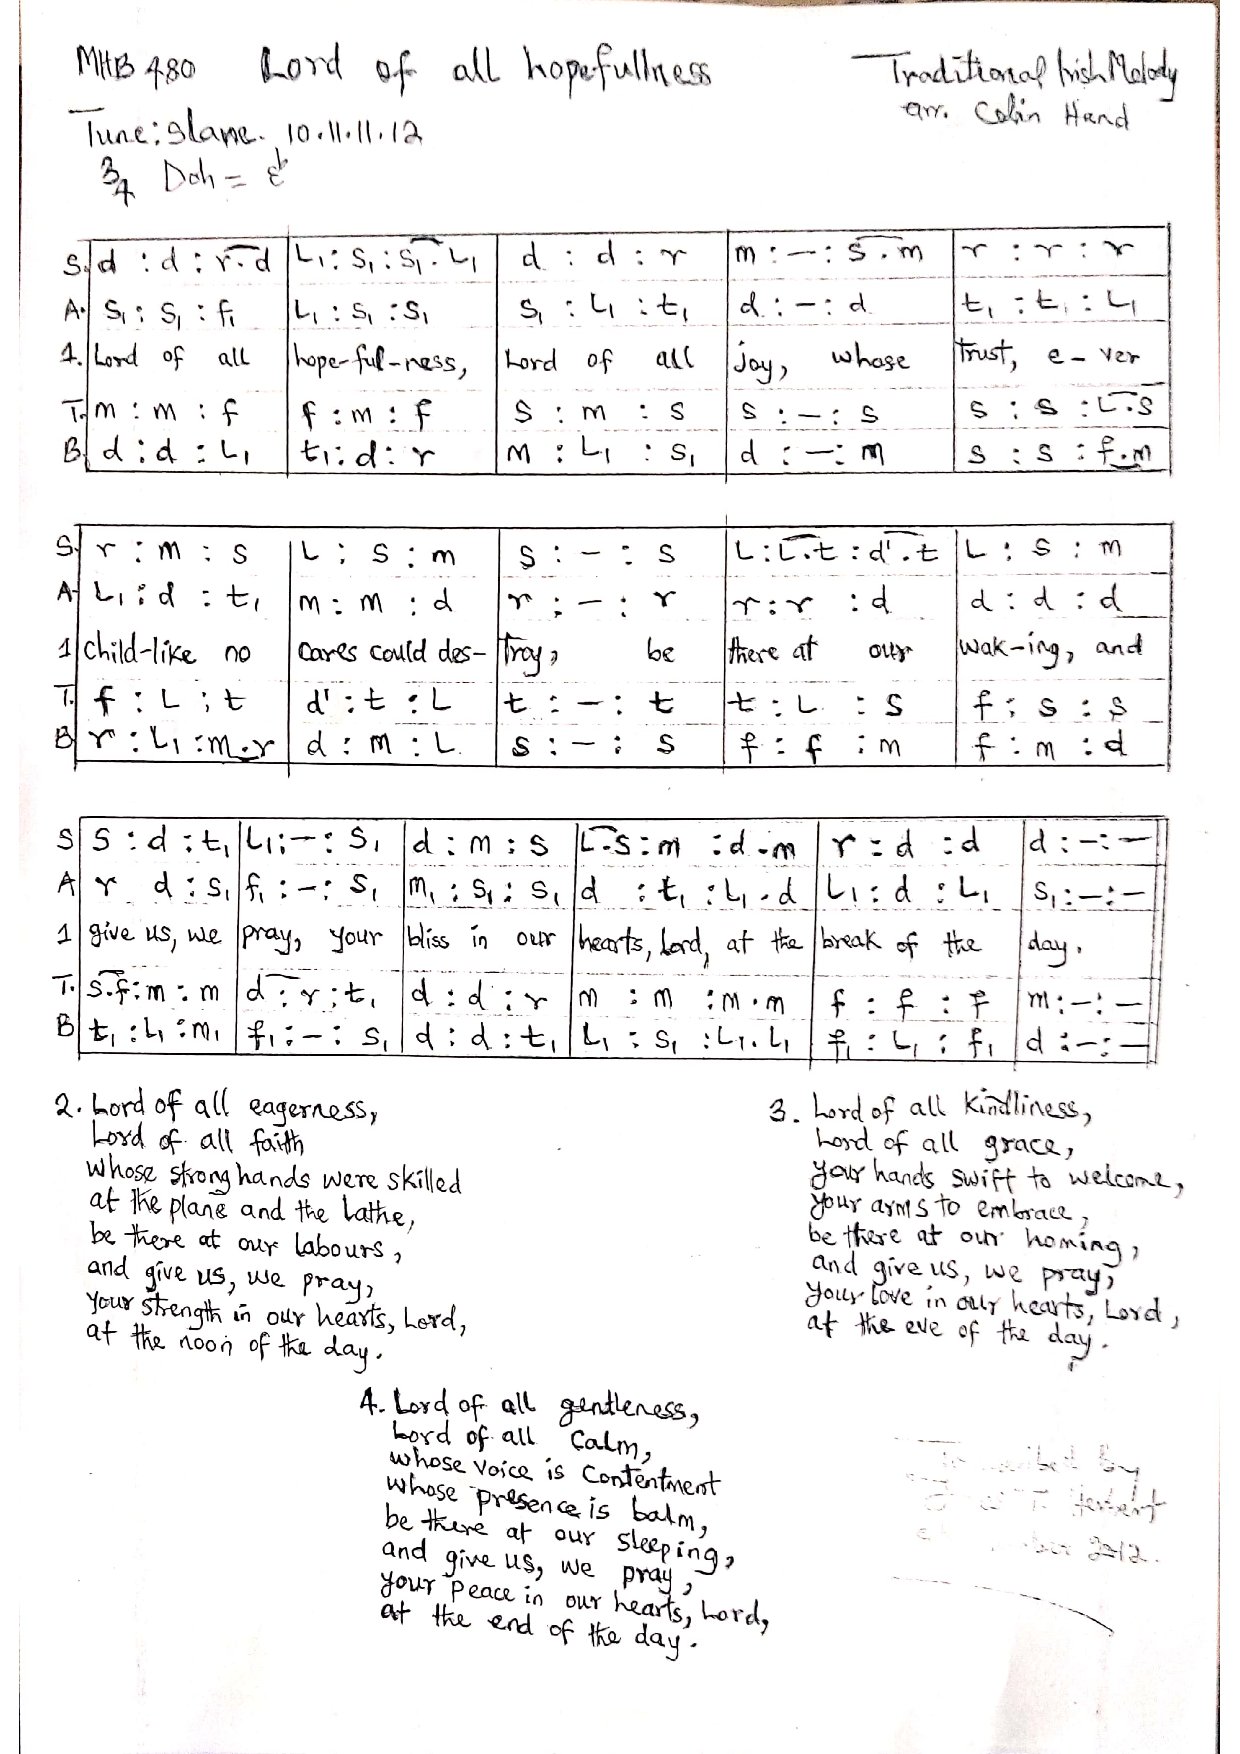 MHB 480 Lord of all hopefullness
Traditional Irish Melody
arr. Colin Hand
Tune: Slane. 10.11.11.12
3/4 Doh = E♭
S. d : d : r.d | L₁ : S₁ : S₁.L₁ | d : d : r | m : – : s.m | r : r : r
A. S₁ : S₁ : f₁ | L₁ : S₁ : S₁ | S₁ : L₁ : t₁ | d : – : d | t₁ : t₁ : L₁
1. Lord of all | hope-ful-ness, | Lord of all | joy, whose | trust, e-ver
T. m : m : f | f : m : f | s : m : s | s : – : s | s : s : L.s
B. d : d : L₁ | t₁ : d : r | m : L₁ : S₁ | d : – : m | s : s : f.m
S. r : m : s | L : s : m | s : – : s | L : L.t : d'.t | L : s : m
A. L₁ : d : t₁ | m : m : d | r : – : r | r : r : d | d : d : d
1 child-like no | cares could des- | troy, be | there at our | wak-ing, and
T. f : L : t | d' : t : L | t : – : t | t : L : s | f : s : s
B r : L₁ : m.r | d : m : L | s : – : s | f : f : m | f : m : d
S s : d : t₁ | L₁ : – : S₁ | d : m : s | L.s : m : d.m | r : d : d | d : – : –
A r d : S₁ | f₁ : – : S₁ | m₁ : S₁ : S₁ | d : t₁ : L₁.d | L₁ : d : L₁ | S₁ : – : –
1 give us, we | pray, your | bliss in our | hearts, Lord, at the | break of the | day.
T. s.f : m : m | d : r : t₁ | d : d : r | m : m : m.m | f : f : f | m : – : –
B t₁ : L₁ : m₁ | f₁ : – : S₁ | d : d : t₁ | L₁ : S₁ : L₁.L₁ | f₁ : L₁ : f₁ | d : – : –
2. Lord of all eagerness,
Lord of all faith
whose strong hands were skilled
at the plane and the lathe,
be there at our labours,
and give us, we pray,
your strength in our hearts, Lord,
at the noon of the day.
3. Lord of all kindliness,
Lord of all grace,
your hands swift to welcome,
your arms to embrace,
be there at our homing,
and give us, we pray,
your love in our hearts, Lord,
at the eve of the day.
4. Lord of all gentleness,
Lord of all calm,
whose voice is contentment
whose presence is balm,
be there at our sleeping,
and give us, we pray,
your peace in our hearts, Lord,
at the end of the day.
by
T. Herbert
2012.